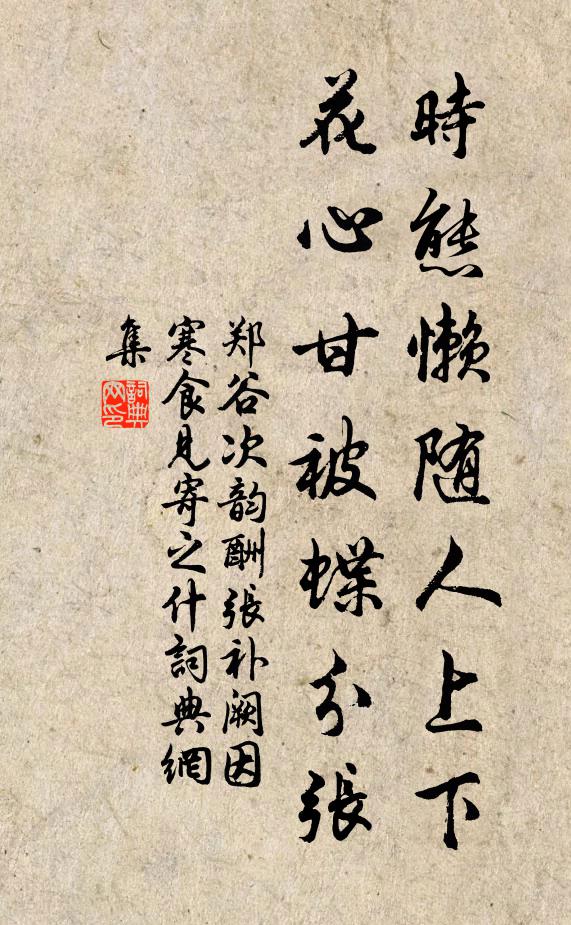 時態懶随人上下
花心甘被蝶分張
郑谷次韵酬張补阙因
寒食見寄之什詞典網
集
詞典
网印